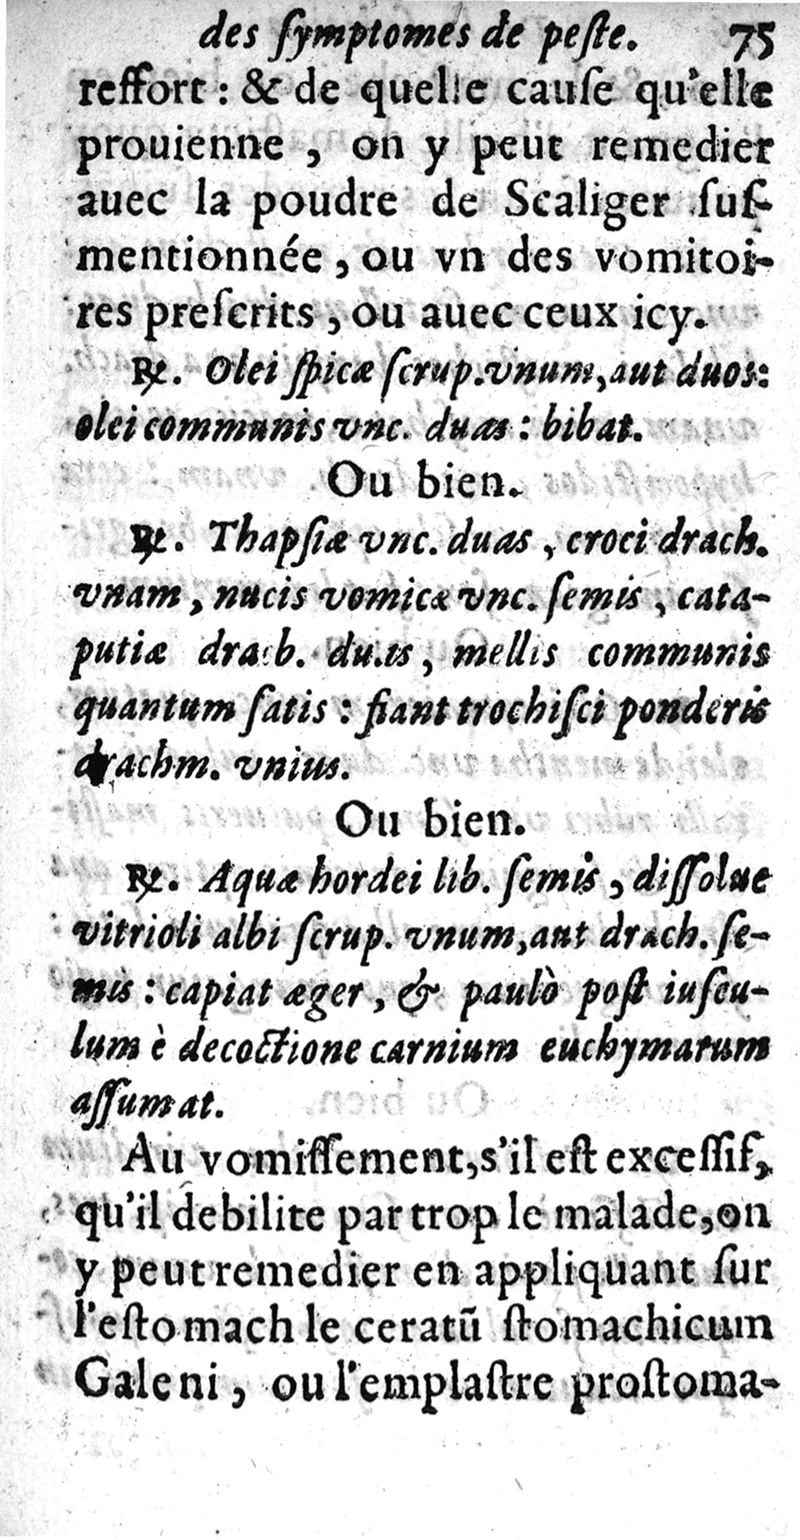 des ſymptomes de peſte. 75
reffort : & de quelle cauſe qu'elle
prouienne , on y peut remedier
auec la poudre de Scaliger ſuſ-
mentionnée , ou vn des vomitoi-
res preſcrits , ou auec ceux icy.
℞. Olei ſpicæ ſcrup. vnum, aut duos:
olei communis vnc. duas : bibat.
Ou bien.
℞. Thapſiæ vnc. duas , croci drach.
vnam , nucis vomicæ vnc. ſemis , cata-
putiæ drach. duas , mellis communis
quantum ſatis : fiant trochiſci ponderis
drachm. vnius.
Ou bien.
℞. Aquæ hordei lib. ſemis , diſſolue
vitrioli albi ſcrup. vnum, aut drach. ſe-
mis : capiat æger , & paulò poſt iuſcu-
lum è decoctione carnium euchymarum
aſſumat.
Au vomiſſement, s'il eſt exceſſif,
qu'il debilite par trop le malade, on
y peut remedier en appliquant ſur
l'eſtomach le ceratũ ſtomachicum
Galeni , ou l'emplaſtre proſtoma-